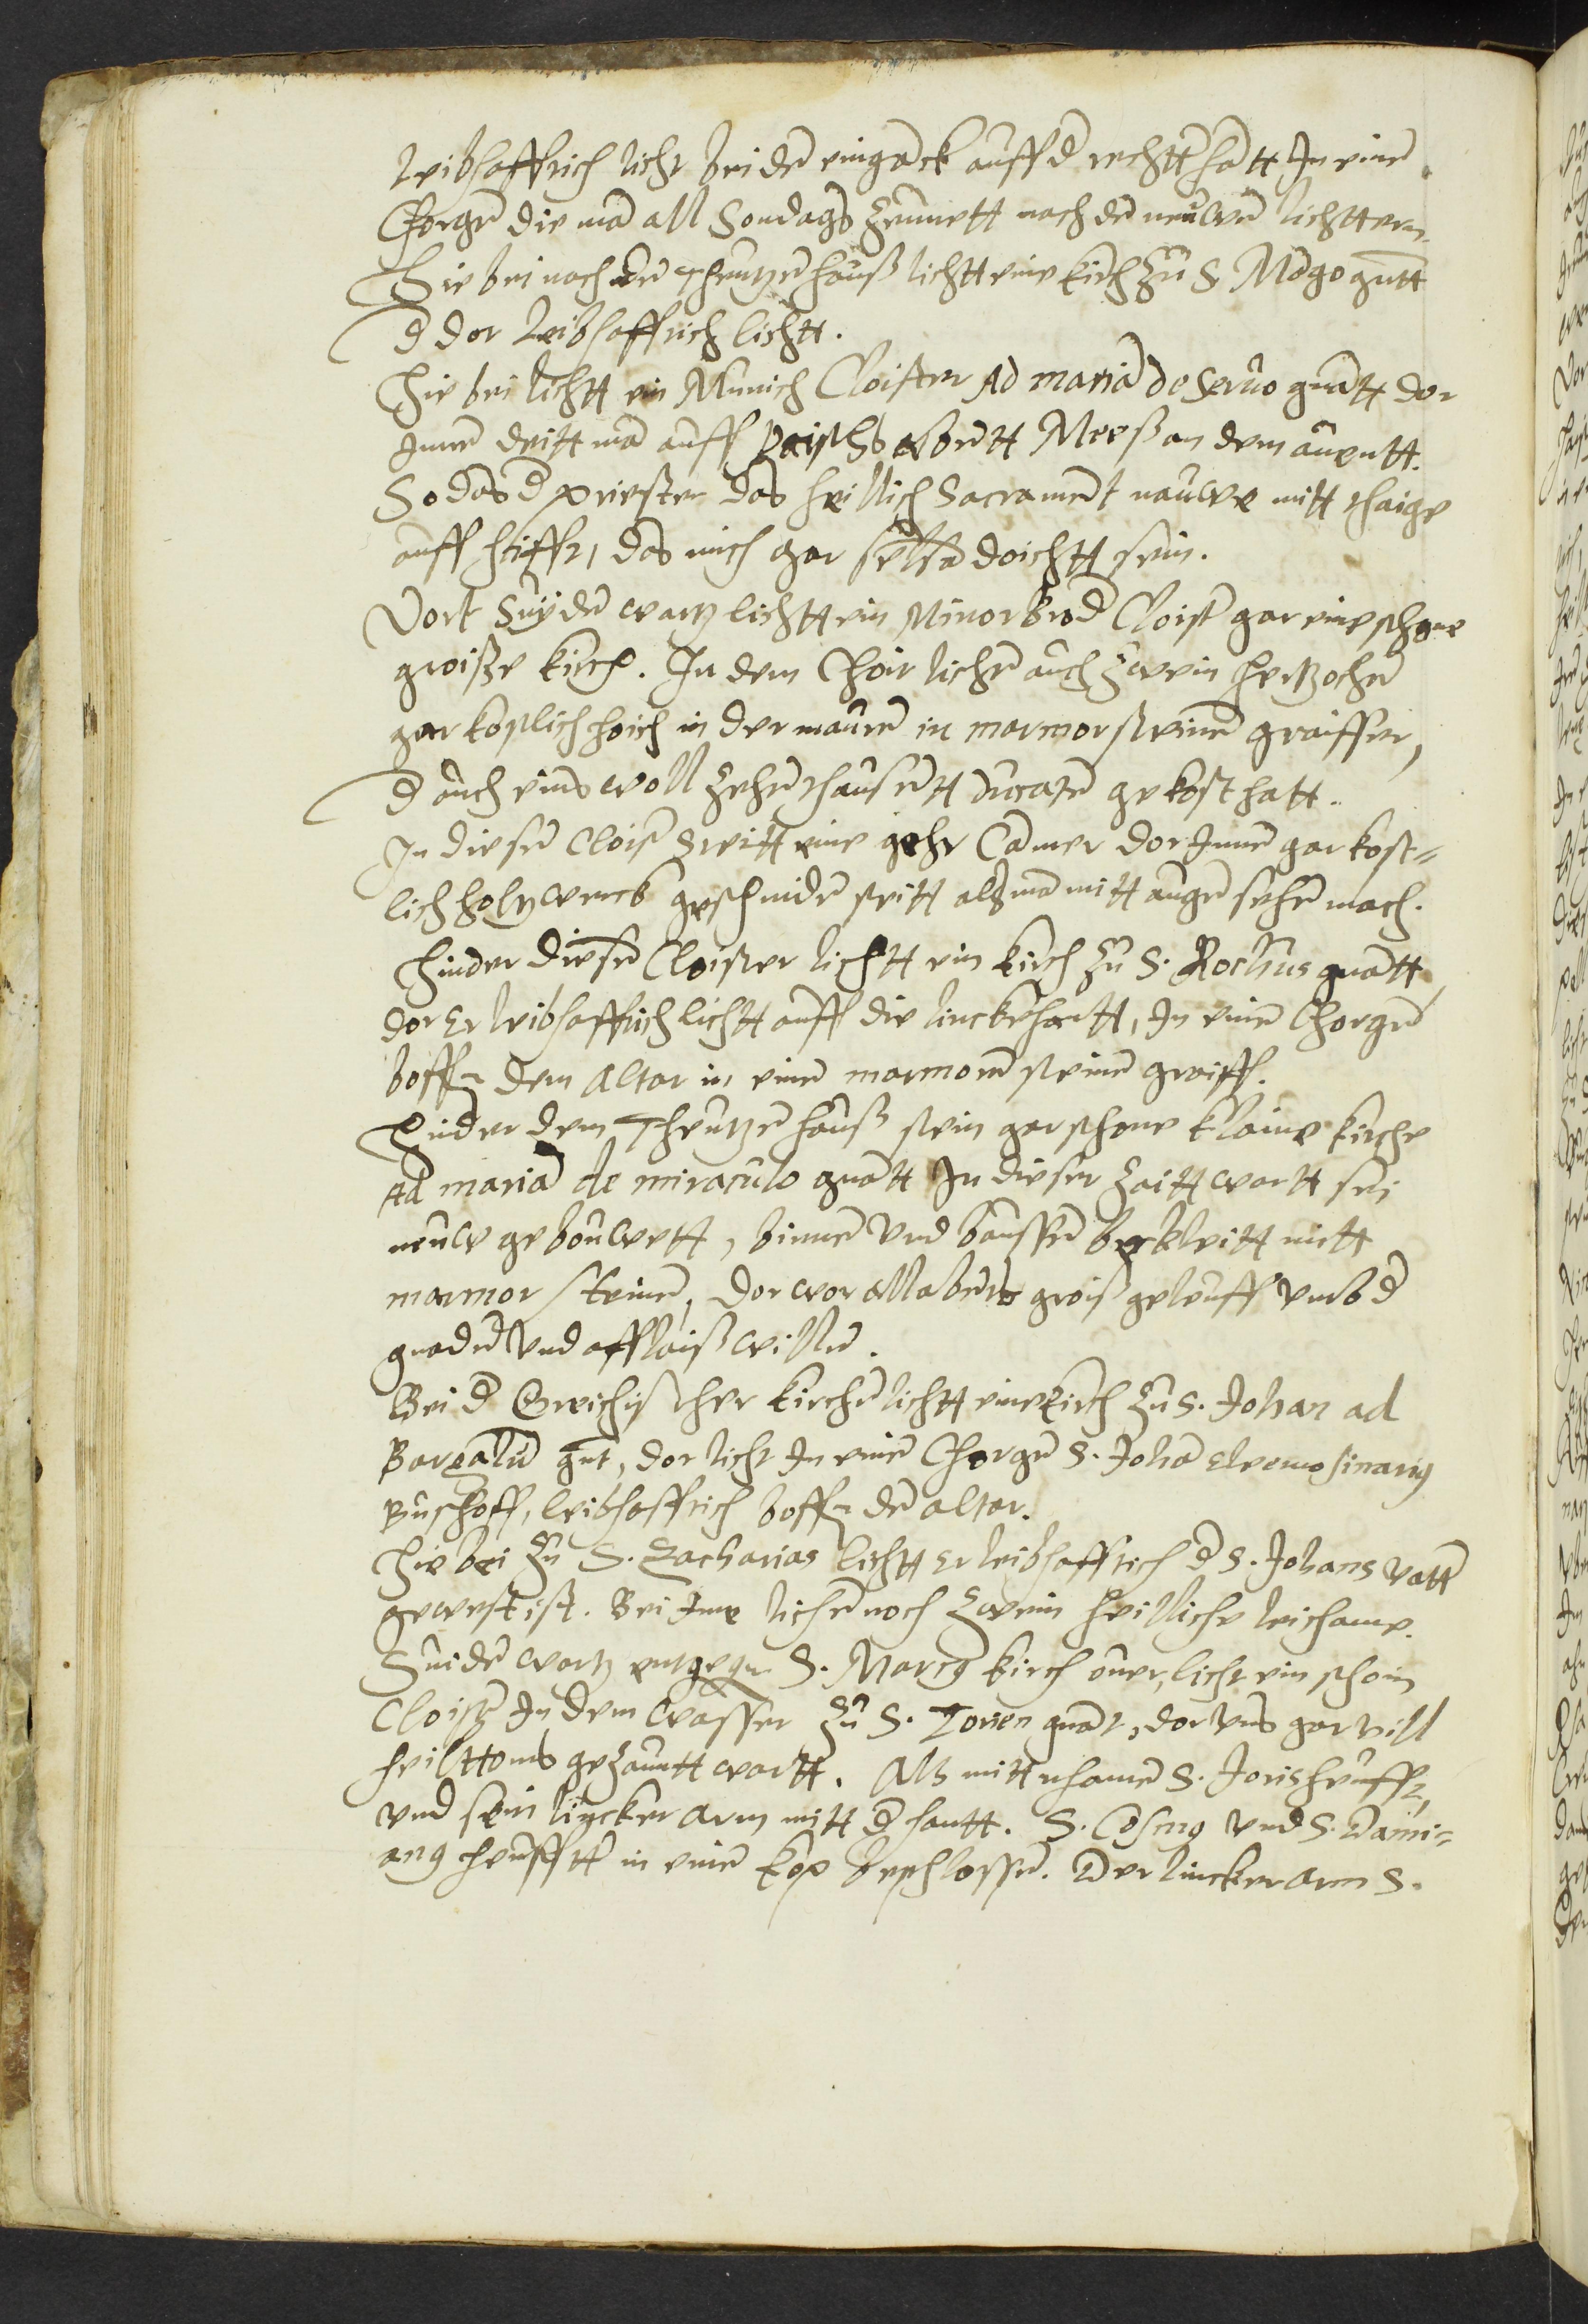 leibhafftich licht bei dē eingāck auff d̄ rechttˉhātt In einē
Chorgē die mā all Sondags zeunett nach dē neuwē lichttern.
Hie bei nach dē Theutzē hauß lichtt eine kirch zū S. Mago gnātt
d̄ dor leibhafftich lichtt.
Hie bei lichtt ein Munich Cloister Ad mariā de seruo gnātt dor
Innē deitt mā auff Paischs abentt Meeß an dem auentt.
So das d̄ priester das heillich Sacrament nauwe mitt thaige
auff hifft, das mich gar seltsā doichtt sein.
Vort Suydē wartz lichtt ein Minorbrod̄ Cloist̄ gar eine schone
groiße kirch. In dem Choir lichē auch zwein hertzochē
gar kostlich hoich in der maurē in marmor steinē graiffer,
d̄ auch eins woll zehē thausentt ducatē gekost hatt.
In diesē Cloist̄ Steitt eine gehr Camer dor Innē gar kost=
lich holtzwerck geschnidē steitt alß mā mitt augē sehē mach.
Hinder diesē Cloister lichtt ein kirch zū S. Rochus gnātt
dor Er leibhafftich lichtt auff die linckˉhantt, In einē Chorgē
boffē dem Altar in einē marmorē steinē graiff.
Hinder dem Theutzē hauß stein gar schone klaine kirche
Ad mariā de miraculo gnātt In dieser zaitt wartt sei
neuw gebouwett, binnē Vnd baussē beckleitt mitt
marmor steinē, dor wor all abents grois geleuff vmb d̄
gnadē Vnd afflaiß willē.
Bei d̄ Greichischer kirchē lichtt eine kirch zū S. Johan ad
Bargalū gnt, dor licht In einē Chorgē S. Johā Eleemosinariꝰ
Buschoff, leibhafftich boffē dē altar.
Hie bei zū S. Zacharias lichtt Er leibhafftich d̄ S. Johans vatt̄
gewest ist. Bei Ime lichē noch zwein heilliche leichame.
Suidē wartz entgegē S. Marcꝰ kirch ouer, licht ein schoin
Cloist̄ In dem wasser zū S. Jorien gnāt, dor vns gar vill
heilttoms gezauntt wartt. Als mitt nhamē S. Joris heufft,
vnd sein lincker arm mitt d̄ hantt. S. Cosmꝰ vnd S. Dami=
anꝰ heufftt in einē kop beschlossē. Der lincker arm S.